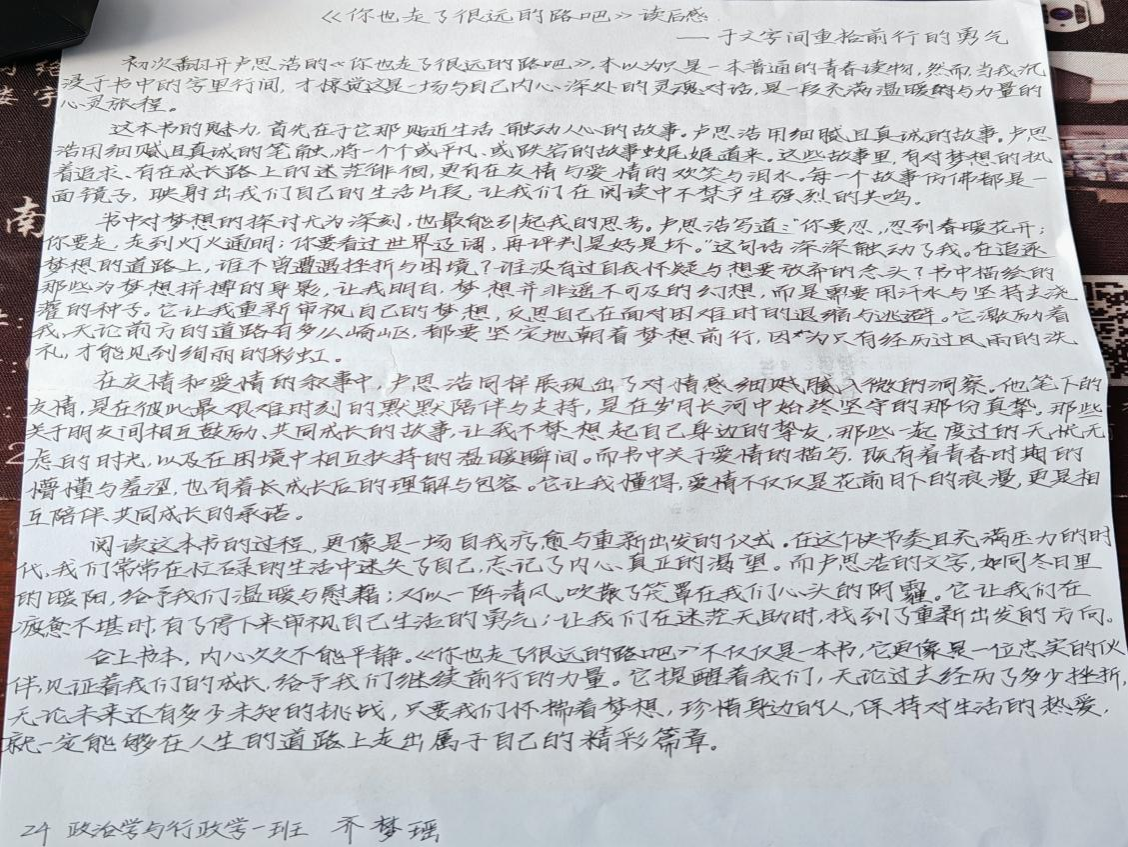 《你也走了很远的路吧》读后感
——于文字间重拾前行的勇气
初次翻开卢思浩的《你也走了很远的路吧》，本以为只是一本普通的青春读物，然而，当我沉
浸于书中的字里行间，才惊觉这是一场与自己内心深处的灵魂对话，是一段充满温暖的与力量的
心灵旅程。
这本书的魅力，首先在于它那贴近生活、触动人心的故事。卢思浩用细腻且真诚的故事。卢思
浩用细腻且真诚的笔触，将一个个或平凡、或跌宕的故事娓娓道来。这些故事里，有对梦想的执
着追求、有在成长路上的迷茫徘徊，更有在友情与爱情的欢笑与泪水。每一个故事仿佛都是一
面镜子，映射出我们自己的生活片段，让我们在阅读中不禁产生强烈的共鸣。
书中对梦想的探讨尤为深刻，也最能引起我的思考。卢思浩写道：“你要忍，忍到春暖花开；
你要走，走到灯火通明；你要看过世界辽阔，再评判是好是坏。”这句话深深触动了我。在追逐
梦想的道路上，谁不曾遭遇挫折与困境？谁没有过自我怀疑与想要放弃的念头？书中描绘的
那些为梦想拼搏的身影，让我明白，梦想并非遥不可及的幻想，而是需要用汗水与坚持去浇
灌的种子。它让我重新审视自己的梦想，反思自己在面对困难时的退缩与逃避。它激励着
我，无论前方的道路有多么崎岖，都要坚定地朝着梦想前行，因为只有经历过风雨的洗
礼，才能见到绚丽的彩虹。
在友情和爱情的叙事中，卢思浩同样展现出了对情感细腻入微的洞察。他笔下的
友情，是在彼此最艰难时刻的默默陪伴与支持，是在岁月长河中始终坚守的那份真挚。那些
关于朋友间相互鼓励、共同成长的故事，让我不禁想起自己身边的挚友，那些一起度过的无忧无
虑的时光，以及在困境中相互扶持的温暖瞬间。而书中关于爱情的描写，既有着青春时期的
懵懂与羞涩，也有着长成长后的理解与包容。它让我懂得，爱情不仅仅是花前月下的浪漫，更是相
互陪伴、共同成长的承诺。
阅读这本书的过程，更像是一场自我疗愈与重新出发的仪式。在这个快节奏且充满压力的时
代，我们常常在忙碌的生活中迷失了自己，忘记了内心真正的渴望。而卢思浩的文字，如同冬日里
的暖阳，给予我们温暖与慰藉；又似一阵清风，吹散了笼罩在我们心头的阴霾。它让我们在
疲惫不堪时，有了停下来审视自己生活的勇气；让我们在迷茫无助时，找到了重新出发的方向。
合上书本，内心久久不能平静。《你也走了很远的路吧》不仅仅是一本书，它更像是一位忠实的伙
伴，见证着我们的成长，给予我们继续前行的力量。它提醒着我们，无论过去经历了多少挫折，
无论未来还有多少未知的挑战，只要我们怀揣着梦想，珍惜身边的人，保持对生活的热爱，
就一定能够在人生的道路上走出属于自己的精彩篇章。
24 政治学与行政学一班 齐梦瑶
南